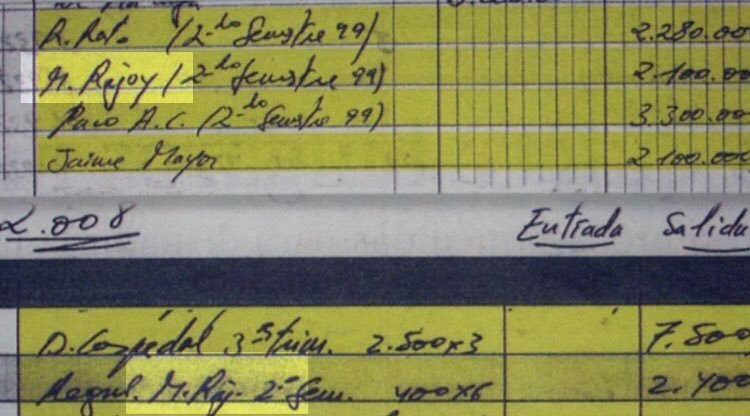 R. Rato (2-do Semestre 99) 2.280.00
M. Rajoy (2-do Semestre 99) 2.100.00
Paco A.C. (2-do Semestre 99) 3.300.00
Jaime Mayor 2.100.00
2.008 Entrada Salida
D. Cospedal 3 trim. 2.500x3 7.500
M. Raj. 2º Sem. 400x6 2.400